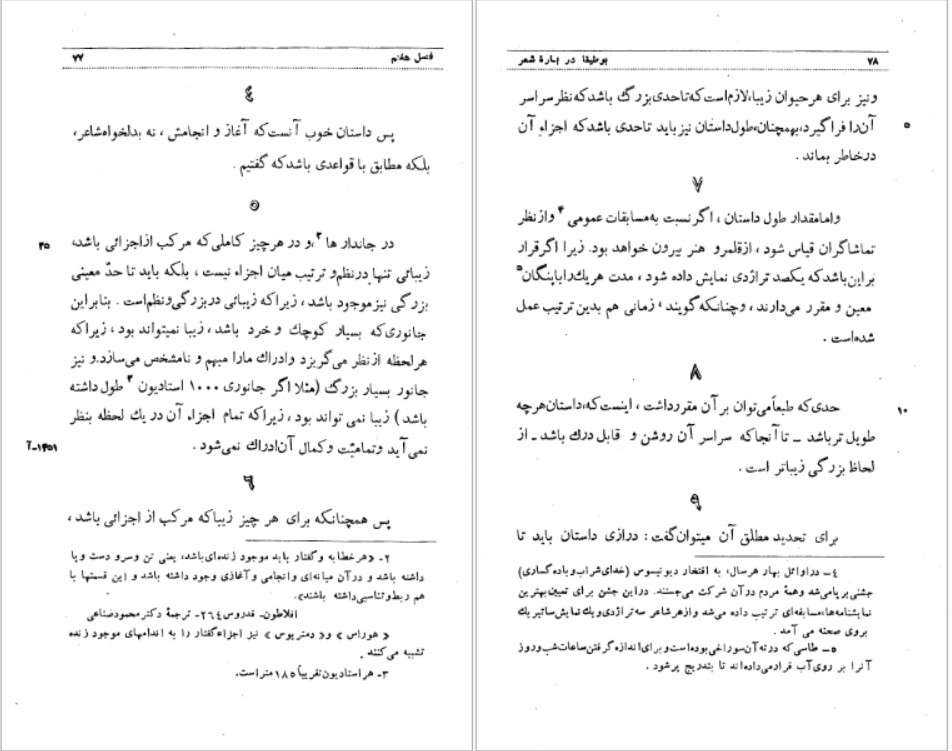 فصل هفتم ۷۷
۴
پس داستان خوب آنست‌که آغاز و انجامش ، نه بدلخواه‌شاعر،
بلکه مطابق با قواعدی باشدکه گفتیم .
۵
در جاندار ها۲،و در هرچیز کاملی‌که مرکب ازاجزائی باشد، ۳۵
زیبائی تنها درنظم‌و ترتیب میان اجزاء نیست ، بلکه باید تا حدّ معینی
بزرگی نیزموجود باشد ، زیراکه زیبائی دربزرگی‌ونظم‌است . بنابراین
جانوری‌که بسیار کوچك و خرد باشد ، زیبا نمیتواند بود ، زیراکه
هرلحظه ازنظر می‌گریزد وادراك مارا مبهم و نامشخص می‌سازد.و نیز
جانور بسیار بزرگ (مثلا اگر جانوری ۱۰۰۰ استادیون۳ طول داشته
باشد) زیبا نمی تواند بود ، زیراکه تمام اجزاء آن در یك لحظه بنظر
نمی‌آید وتمامیّت وکمال آن‌ادراك نمی‌شود . ۱۴۵۱ـ‌آ
۶
پس همچنانکه برای هر چیز زیباکه مرکب از اجزائی باشد ،
۲- «هرخطابه وگفتار باید موجود زنده‌ای‌باشد، یعنی تن وسرو دست وپا
داشته باشد و درآن میانه‌ای وانجامی وآغازی وجود داشته باشد و این قسمتها با
هم ربط‌وتناسبی‌داشته باشند».
افلاطون- فدروس ۲۶۴- ترجمهٔ دکتر محمودصناعی
« هوراس » و« دمتریوس » نیز اجزاءگفتار را به اندامهای موجود زنده
تشبیه می‌کنند .
۳- هراستادیون تقریباً ۱۸۵ متراست.
بوطیقا در بارهٔ شعر ۷۸
ونیز برای هرحیوان زیبا،لازم‌است‌که‌تاحدی‌بزرگ باشدکه‌نظرسراسر
آن‌را فراگیرد،بهمچنان،طول‌داستان نیزباید تاحدی باشدکه اجزاء آن ۵
درخاطر بماند .
۷
وامامقدار طول داستان ، اگرنسبت به‌مسابقات عمومی۴ وازنظر
تماشاگران قیاس شود ، ازقلمرو هنر بیرون خواهد بود. زیرا اگرقرار
براین‌باشدکه یکصد تراژدی نمایش داده شود ، مدت هریك‌راباپنگان۵
معین و مقرر می‌دارند ، وچنانکه‌گویند ، زمانی هم بدین ترتیب عمل
شده‌است .
۸
حدی‌که طبعاًمی‌توان بر آن مقررداشت ، اینست‌که،داستان‌هرچه ۱۰
طویل ترباشد ـ تاآنجاکه سراسر آن روشن و قابل درك باشد ـ از
لحاظ بزرگی زیباتر است .
۹
برای تحدید مطلق آن میتوان‌گفت: درازی داستان باید تا
۴ـ دراوائل بهار هرسال، به افتخار دیونیسوس (خدای‌شراب‌وباده‌گساری)
جشنی‌برپامی‌شد وهمهٔ مردم درآن شرکت می‌جستند. دراین جشن برای تعیین بهترین
نمایشنامه‌ها،مسابقه‌ای ترتیب داده می‌شد وازهرشاعر سه‌تراژدی‌ویك‌نمایش‌ساتیریك
بروی صحنه می آمد .
۵ـ طاسی که درته‌آن‌سوراخی‌بوده‌است‌وبرای‌اندازه‌گرفتن‌ساعات‌شب‌وروز
آنرا بر روی‌آب قرارمی‌داده‌اند تا بتدریج پرشود .